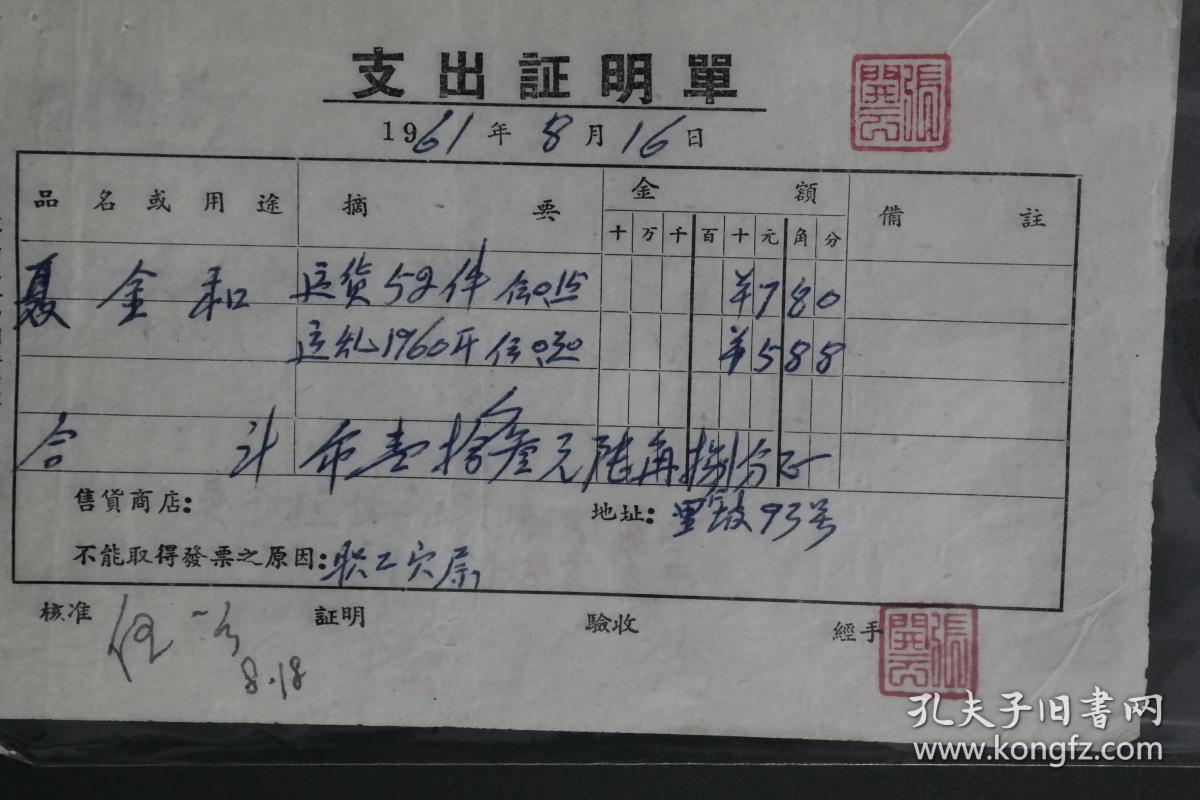 支出証明單
1961年8月16日
品名或用途 摘要 金額 備註
十万千百十元角分
金和 运货52件 @0.15 ¥780
运 1960斤 @0.30 ¥588
合计 币壹拾叁元陆角捌分正
售貨商店: 地址: 93号
不能取得發票之原因: 职工
核准 証明 驗收 經手
8.18
張開
張開
孔夫子旧書网
www.kongfz.com